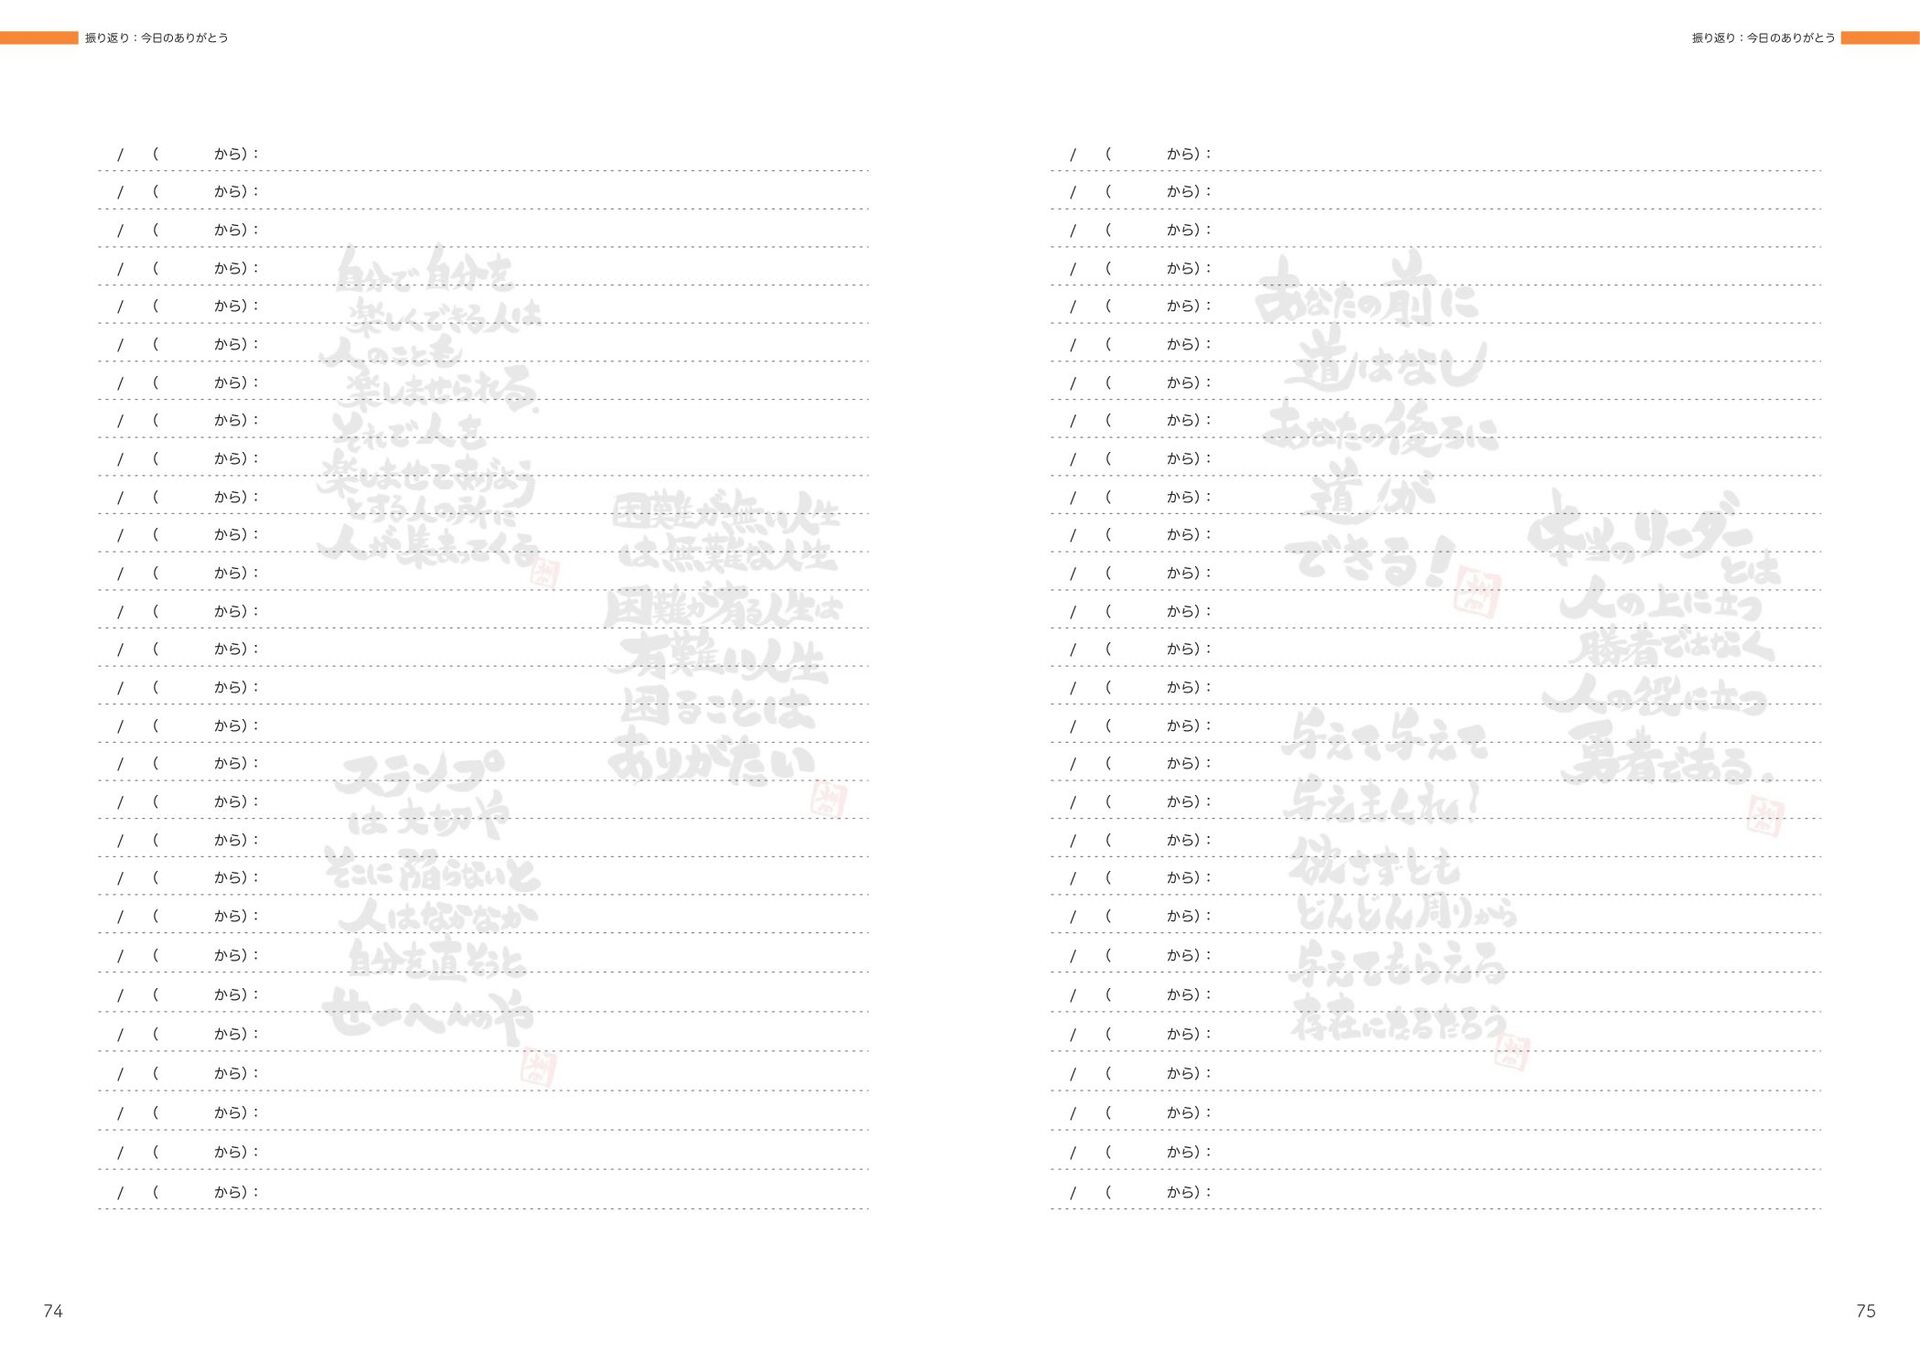 振り返り：今日のありがとう
/ （ から）：
/ （ から）：
/ （ から）：
/ （ から）：
/ （ から）：
/ （ から）：
/ （ から）：
/ （ から）：
/ （ から）：
/ （ から）：
/ （ から）：
/ （ から）：
/ （ から）：
/ （ から）：
/ （ から）：
/ （ から）：
/ （ から）：
/ （ から）：
/ （ から）：
/ （ から）：
/ （ から）：
/ （ から）：
/ （ から）：
/ （ から）：
/ （ から）：
/ （ から）：
/ （ から）：
/ （ から）：
自分で自分を
楽しくできる人は
人のことも
楽しませられる.
それで人を
楽しませてあげよう
とする人の所に
人が集まってくる
困難が無い人生
は無難な人生
困難が有る人生は
有難い人生
困ることは
ありがたい
スランプ
は大切や
そこに陥らないと
人はなかなか
自分を直そうと
せーへんのや
74
振り返り：今日のありがとう
/ （ から）：
/ （ から）：
/ （ から）：
/ （ から）：
/ （ から）：
/ （ から）：
/ （ から）：
/ （ から）：
/ （ から）：
/ （ から）：
/ （ から）：
/ （ から）：
/ （ から）：
/ （ から）：
/ （ から）：
/ （ から）：
/ （ から）：
/ （ から）：
/ （ から）：
/ （ から）：
/ （ から）：
/ （ から）：
/ （ から）：
/ （ から）：
/ （ から）：
/ （ から）：
/ （ から）：
/ （ から）：
あなたの前に
道はなし
あなたの後ろに
道が
できる！
本当のリーダー
とは
人の上に立つ
勝者ではなく
人の役に立つ
勇者である.
与えて与えて
与えまくれ！
欲さずとも
どんどん周りから
与えてもらえる
存在になるだろう
75